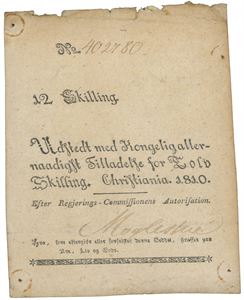 No. 402780.
12 Skilling.
Udstedt med Kongelig aller-
naadigst Tilladelse for Tolv
Skilling. Christiania. 1810.
Efter Regjerings-Commissionens Autorisation.
Hvo, som eftergiør eller forfalsker denne Seddel, straffes paa
Ære, Liv og Gods.